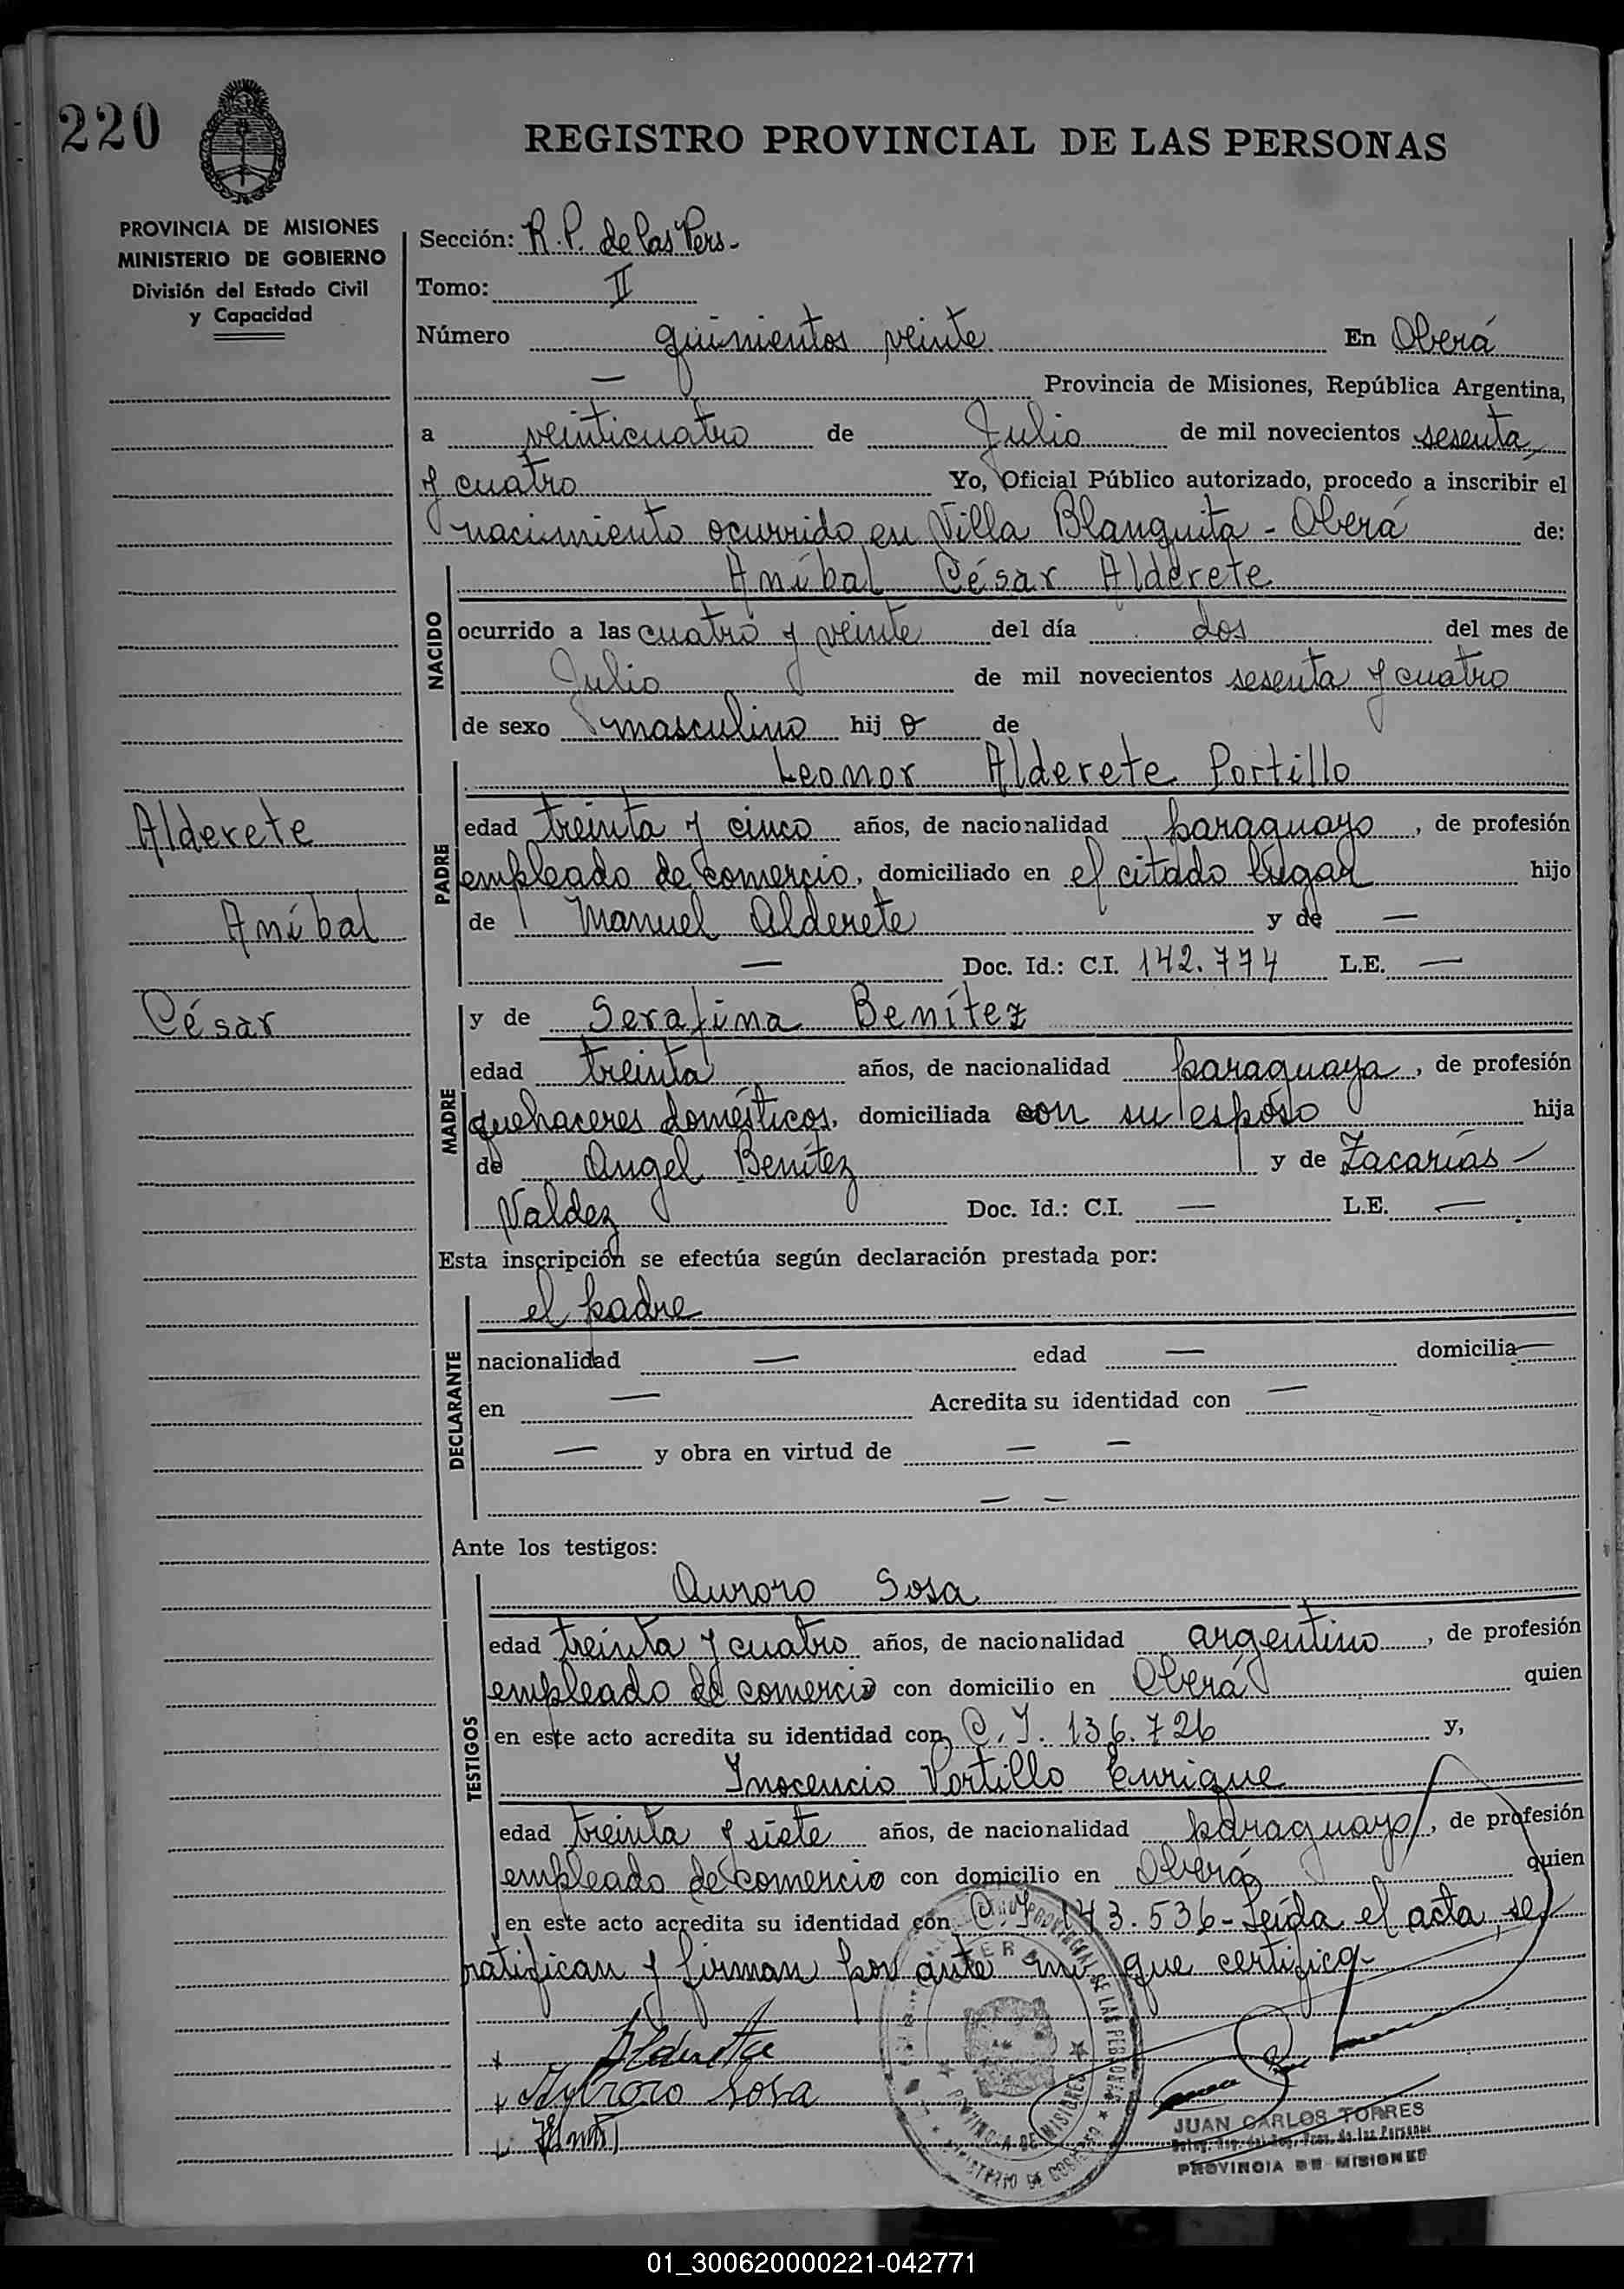 220
REGISTRO PROVINCIAL DE LAS PERSONAS
PROVINCIA DE MISIONES
MINISTERIO DE GOBIERNO
División del Estado Civil
y Capacidad
Sección: R. P. de las Pers.-
Tomo: II
Número quinientos veinte En Oberá
— Provincia de Misiones, República Argentina,
a veinticuatro de Julio de mil novecientos sesenta
y cuatro Yo, Oficial Público autorizado, procedo a inscribir el
nacimiento ocurrido en Villa Blanquita - Oberá de:
NACIDO
Aníbal César Alderete
ocurrido a las cuatro y veinte del día dos del mes de
Julio de mil novecientos sesenta y cuatro
de sexo masculino hij o de
PADRE
Leonor Alderete Portillo
edad treinta y cinco años, de nacionalidad paraguayo, de profesión
empleado de comercio, domiciliado en el citado lugar hijo
de Manuel Alderete y de —
— Doc. Id.: C.I. 142.774 L.E. —
Alderete
Aníbal
César
MADRE
y de Serafina Benítez
edad treinta años, de nacionalidad paraguaya, de profesión
quehaceres domésticos, domiciliada con su esposo hija
de Angel Benítez y de Zacarías —
Valdez Doc. Id.: C.I. — L.E. —
Esta inscripción se efectúa según declaración prestada por:
DECLARANTE
el padre
nacionalidad — edad — domicilia —
en — Acredita su identidad con —
— y obra en virtud de — —
— —
Ante los testigos:
TESTIGOS
Auroro Sosa
edad treinta y cuatro años, de nacionalidad argentino, de profesión
empleado de comercio con domicilio en Oberá quien
en este acto acredita su identidad con C. I. 136.726 y,
Inocencio Portillo Enrique
edad treinta y siete años, de nacionalidad paraguayo, de profesión
empleado de comercio con domicilio en Oberá quien
en este acto acredita su identidad con C. I. 143.536- Leída el acta, se
ratifican y firman por ante mí que certifico-
Alderete
Auroro Sosa
JUAN CARLOS TORRES
PROVINCIA DE MISIONES
01_300620000221-042771